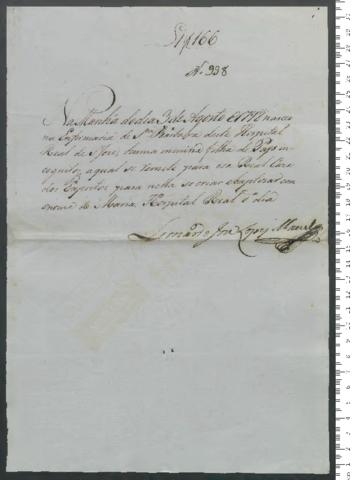 166
N. 998
Na Manhã do dia 3 de Agosto de 1792 nasceo
na Enfermaria de Sta Barbora deste Hospital
Real de S. Jose, huma menina filha de Pays in-
cognitos, a qual se remete para essa Real Caza
dos Expostos para nella se criar e baptizar com
o nome de Maria. Hospital Real o dia
Jose Lopes